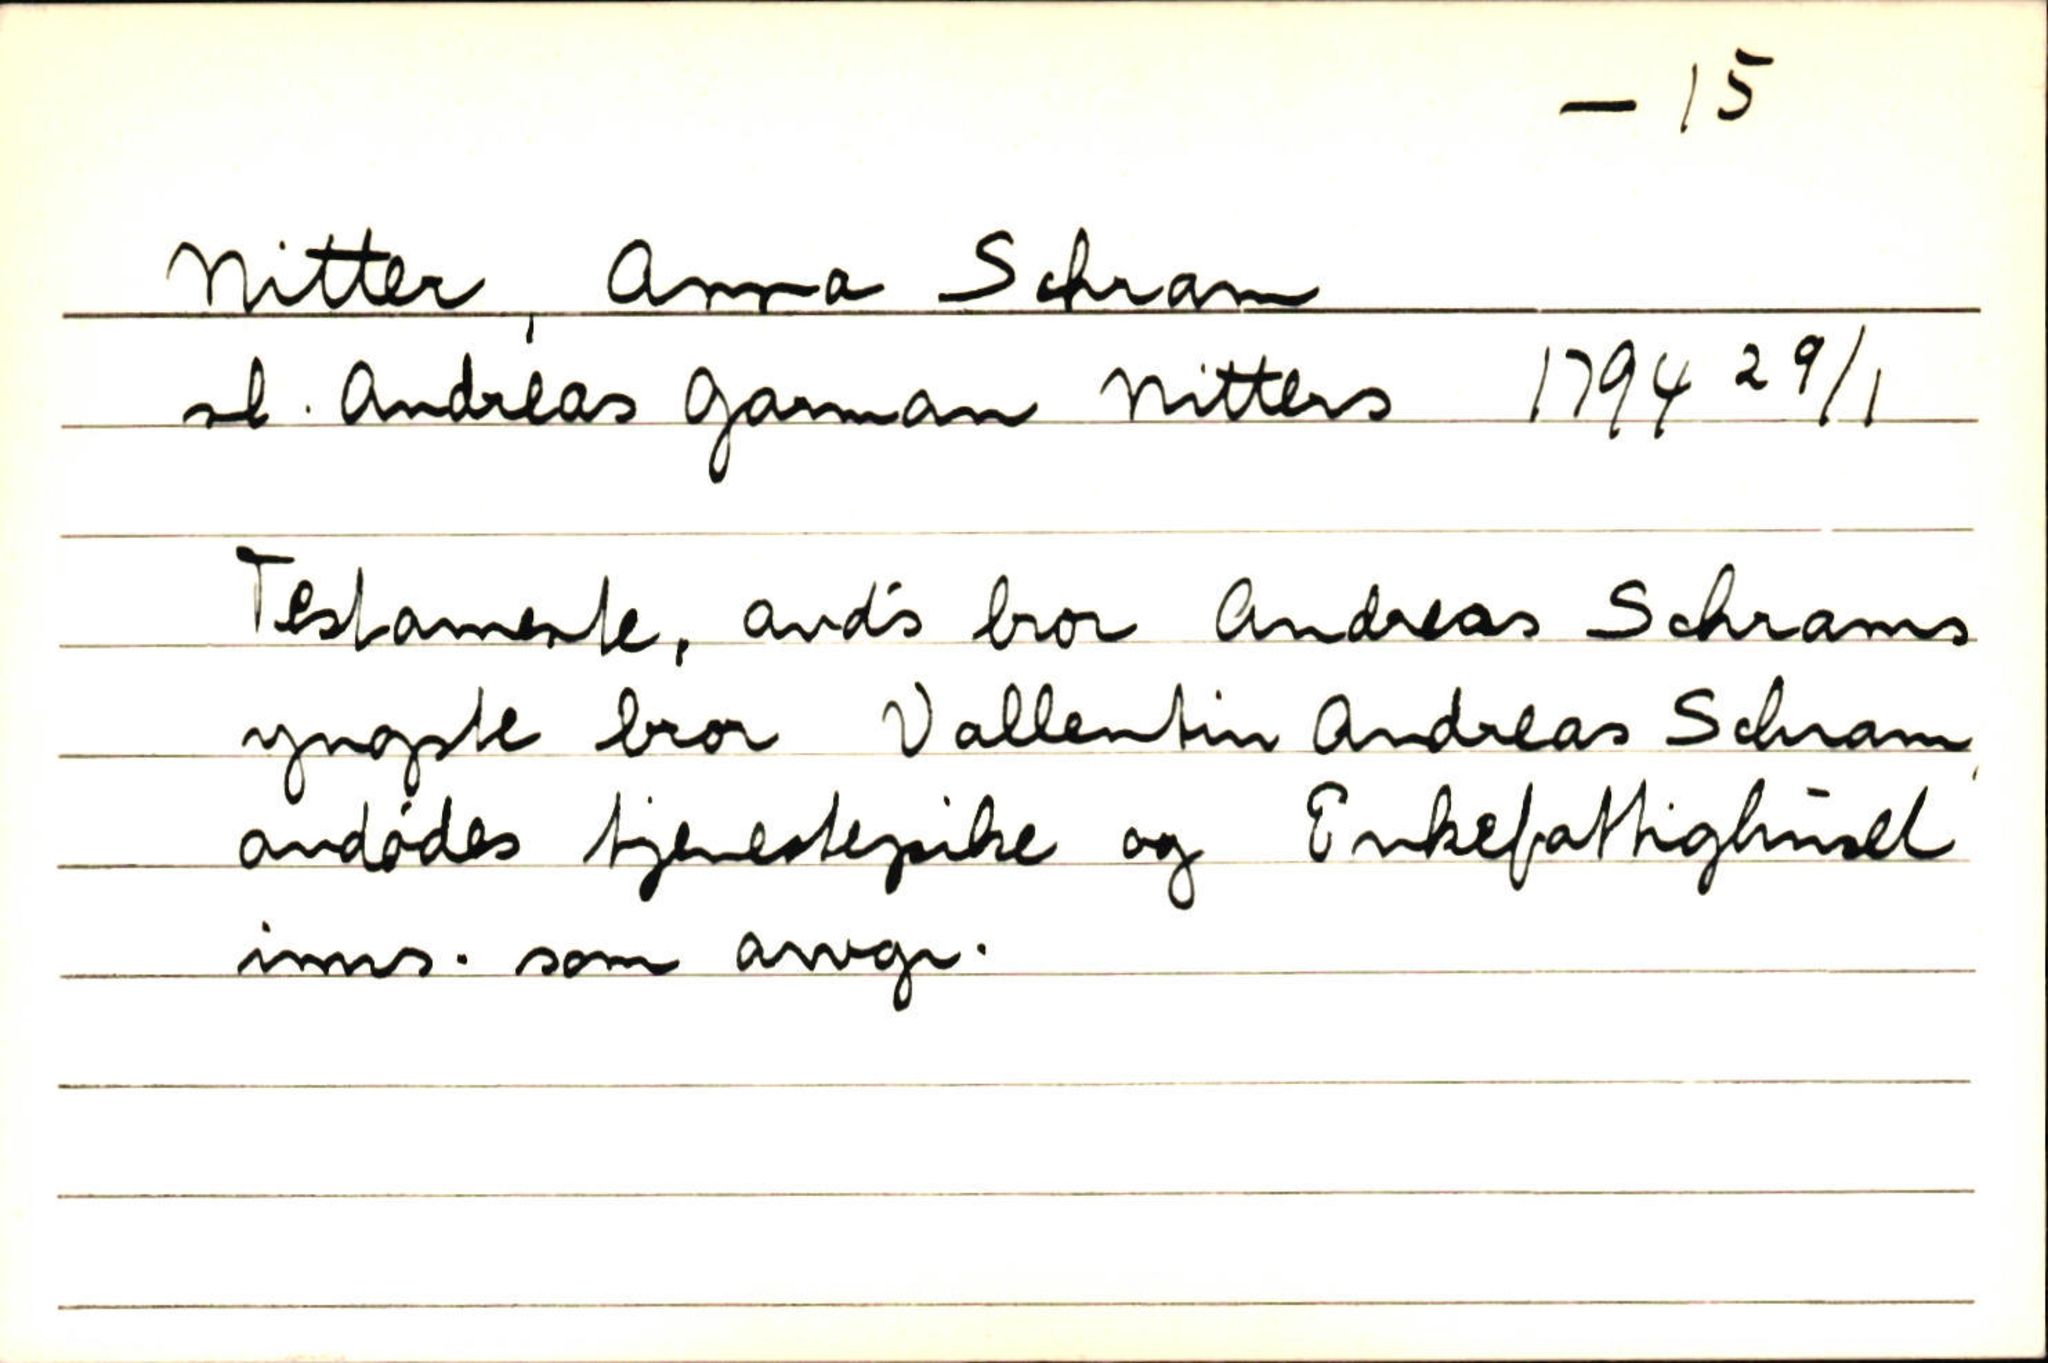 — 15
Nitter, Anna Schram
sl. Andreas Garman Nitters 1794 29/1
Testamente, avd's bror Andreas Schrams
yngste bror Vallentin Andreas Schram,
avdødes tjenestepike og Enkefattighuset
inns. som arvgr.